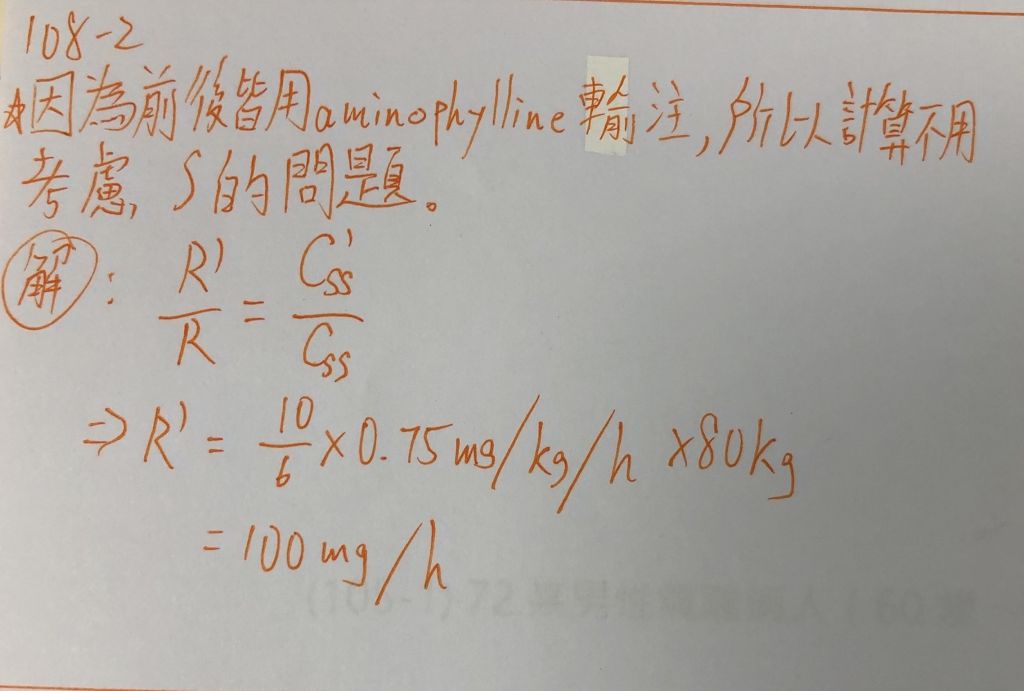 108-2
☆因為前後皆用aminophylline輸注,所以計算不用
考慮S的問題。
解: R'/R = C'ss/Css
⇒ R' = 10/6 × 0.75mg/kg/h ×80kg
= 100mg/h